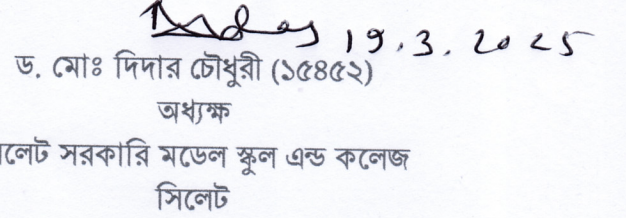 19.3.2025
ড. মোঃ দিদার চৌধুরী (১৫৪৫২)
অধ্যক্ষ
লেট সরকারি মডেল স্কুল এন্ড কলেজ
সিলেট